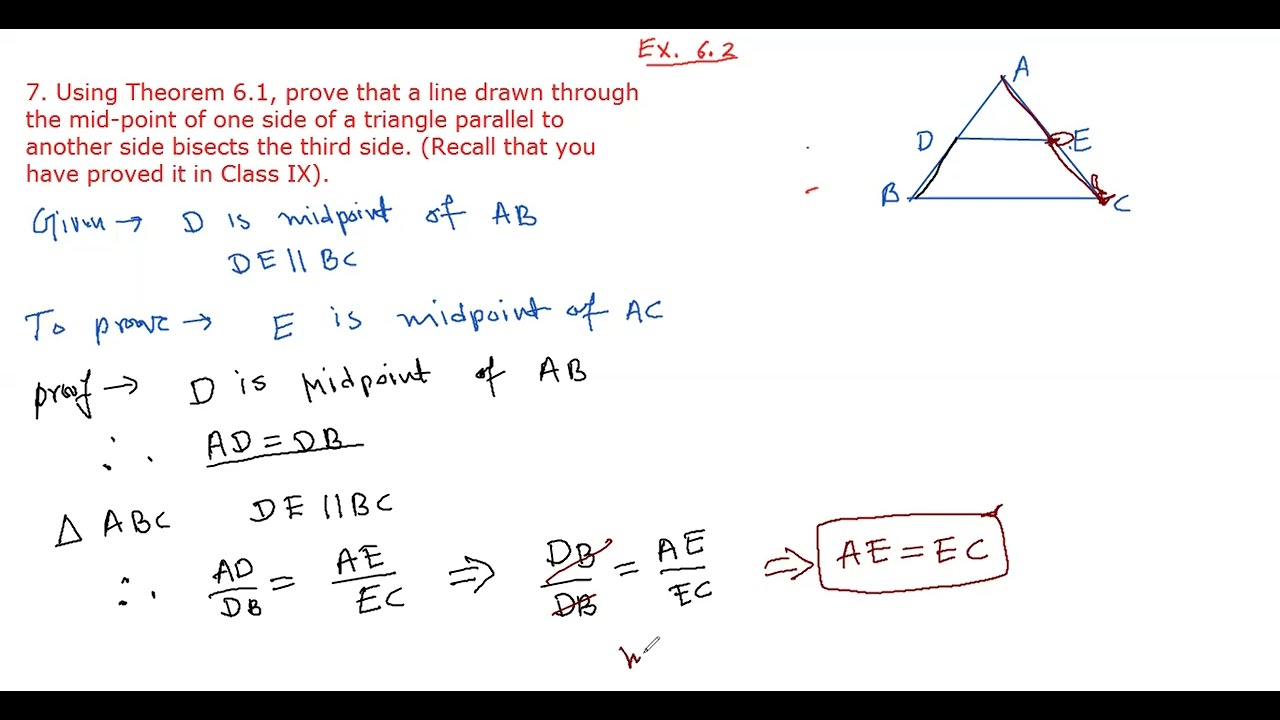 Ex. 6.2
7. Using Theorem 6.1, prove that a line drawn through
the mid-point of one side of a triangle parallel to
another side bisects the third side. (Recall that you
have proved it in Class IX).
A
D
E
B
C
Given → D is midpoint of AB
DE || BC
To prove → E is midpoint of AC
proof → D is Midpoint of AB
∴ AD = DB
Δ ABC DE || BC
∴ AD/DB = AE/EC ⇒ DB/DB = AE/EC ⇒ AE = EC